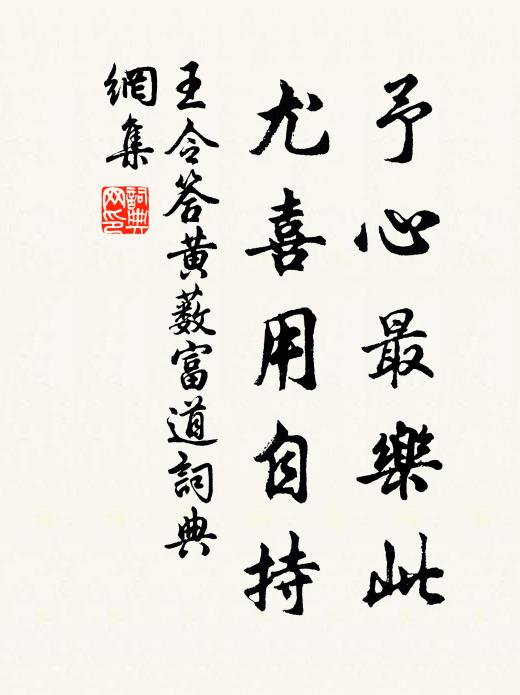 予心最樂此
尤喜用自持
王令答黄藪富道詞典
網集
詞典
网印